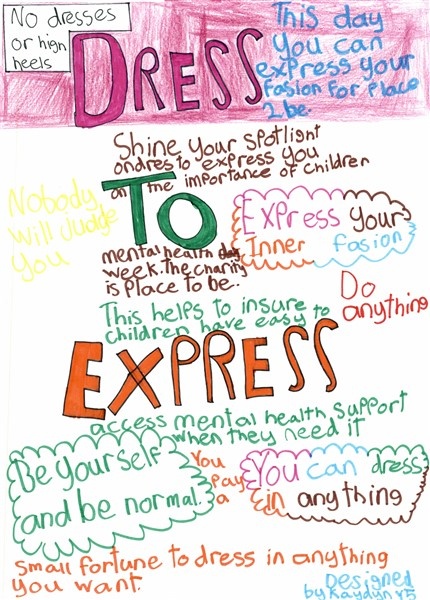 No dresses
or high
heels
DRESS
This day
You can
express your
fasion for place
2 be.
Shine your spotlight
ondres to express you
on the importance of children
TO
Nobody
will Judge
you
Express your
Inner fasion
mental health
week. The charity
is place to be.
Do
anything
This helps to insure
children have easy to
EXPRESS
access mental health support
when they need it
Be yourself
and be normal.
You
Pay
a
You can dress
in anything
small fortune to dress in anything
you want.
Designed
by Kaydyn Y5